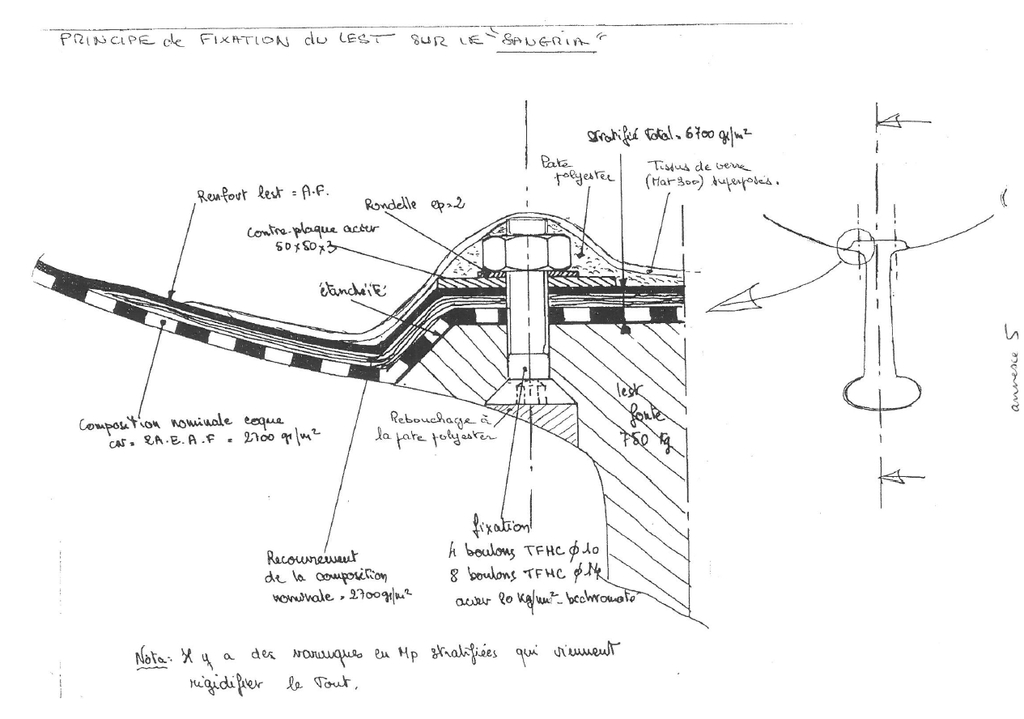 PRINCIPE de FIXATION du LEST SUR LE "SANGRIA"
stratifié total = 6700 gr/m²
Pate
polyester
Tissus de verre
(Mat 300) superposés.
Renfort lest = A.F.
Rondelle ep=2
contre-plaque acier
50x50x3
étanchéité
Composition nominale coque
= 2A.E.A.F = 2700 gr/m²
Rebouchage à
la pate polyester
lest
fonte
750 Kg
annexe 5
Recouvrement
de la composition
nominale = 2700 gr/m²
fixation
4 boulons TFHC φ 10
8 boulons TFHC φ 14
acier 80 Kg/mm² - bichromaté
Nota: Il y a des varangues en Mp stratifiées qui viennent
rigidifier le Tout.